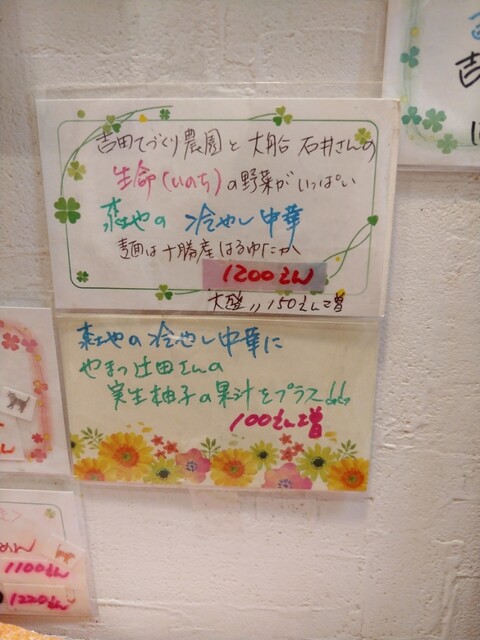 吉田てづくり農園と大船 石井さんの
生命(いのち)の野菜がいっぱい
恋やの 冷やし中華
麺は十勝産はるゆたか
1200えん
大盛〃150えん増
恋やの冷やし中華に
やまつ辻田さんの
実生柚子の果汁をプラス
100えん増
めん
1100えん
1220えん
吉